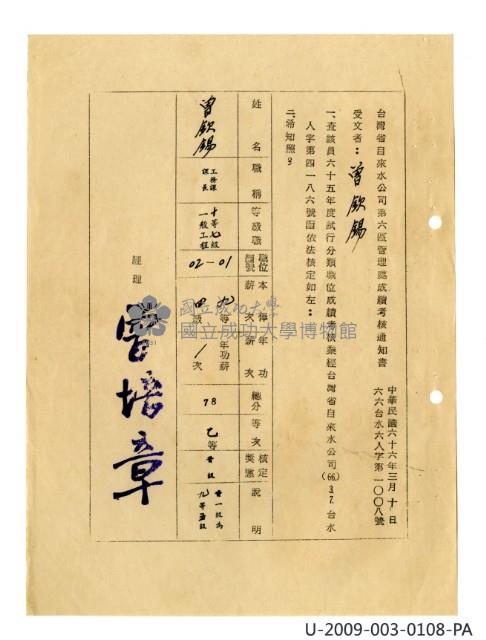 台灣省自來水公司第六區管理處成績考核通知書
中華民國六十六年三月十日
六六台水六人字第一〇〇八號
受文者：曾欽錫
一、查該員六十五年度試行分類職位成績考核業經台灣省自來水公司(66)3.7.台水
人字第四一八六號函依法核定如左：
二、希知照。
姓名
職稱
等級職
職位
編號
本俸
薪次
年功
薪次
總分
等次
核定
獎懲
說明
曾欽錫
工務課
課長
十等七級
一般工程
02-01
九等
年功薪
1次
78
乙等
晉級
晉一級為
經理
曾培章
國立成功大學
國立成功大學博物館
U-2009-003-0108-PA